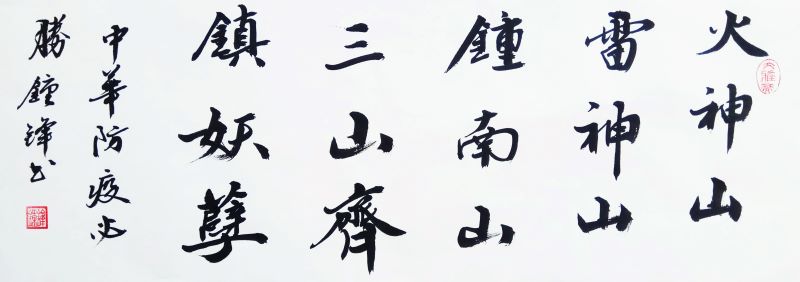 火神山
雷神山
鍾南山
三山齊
鎮妖孽
中華防疫必
勝鐘鋒书